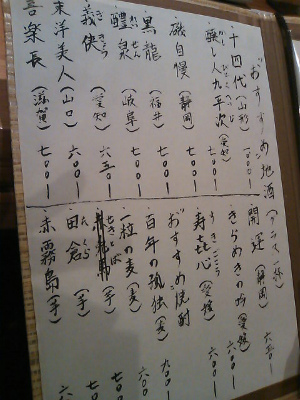 おすすめ地酒(グラス一杯)
十四代(山形) 一〇〇〇ー
醸し人九平次(愛知)
磯自慢(静岡) 七〇〇ー
黒龍(福井) 七〇〇ー
醴泉(岐阜) 七〇〇ー
義侠(愛知) 六五〇ー
東洋美人(山口) 六〇〇ー
三楽長(滋賀) 七〇〇ー
開運(静岡) 六五〇ー
きらめきの吟(愛媛) 六〇〇ー
寿喜心(愛媛) 六〇〇ー
おすすめ焼酎
百年の孤独(麦) 九〇〇ー
一粒の麦(麦) 六〇〇
(芋) 七〇〇ー
田倉(芋) 七〇
赤霧島(芋) 六